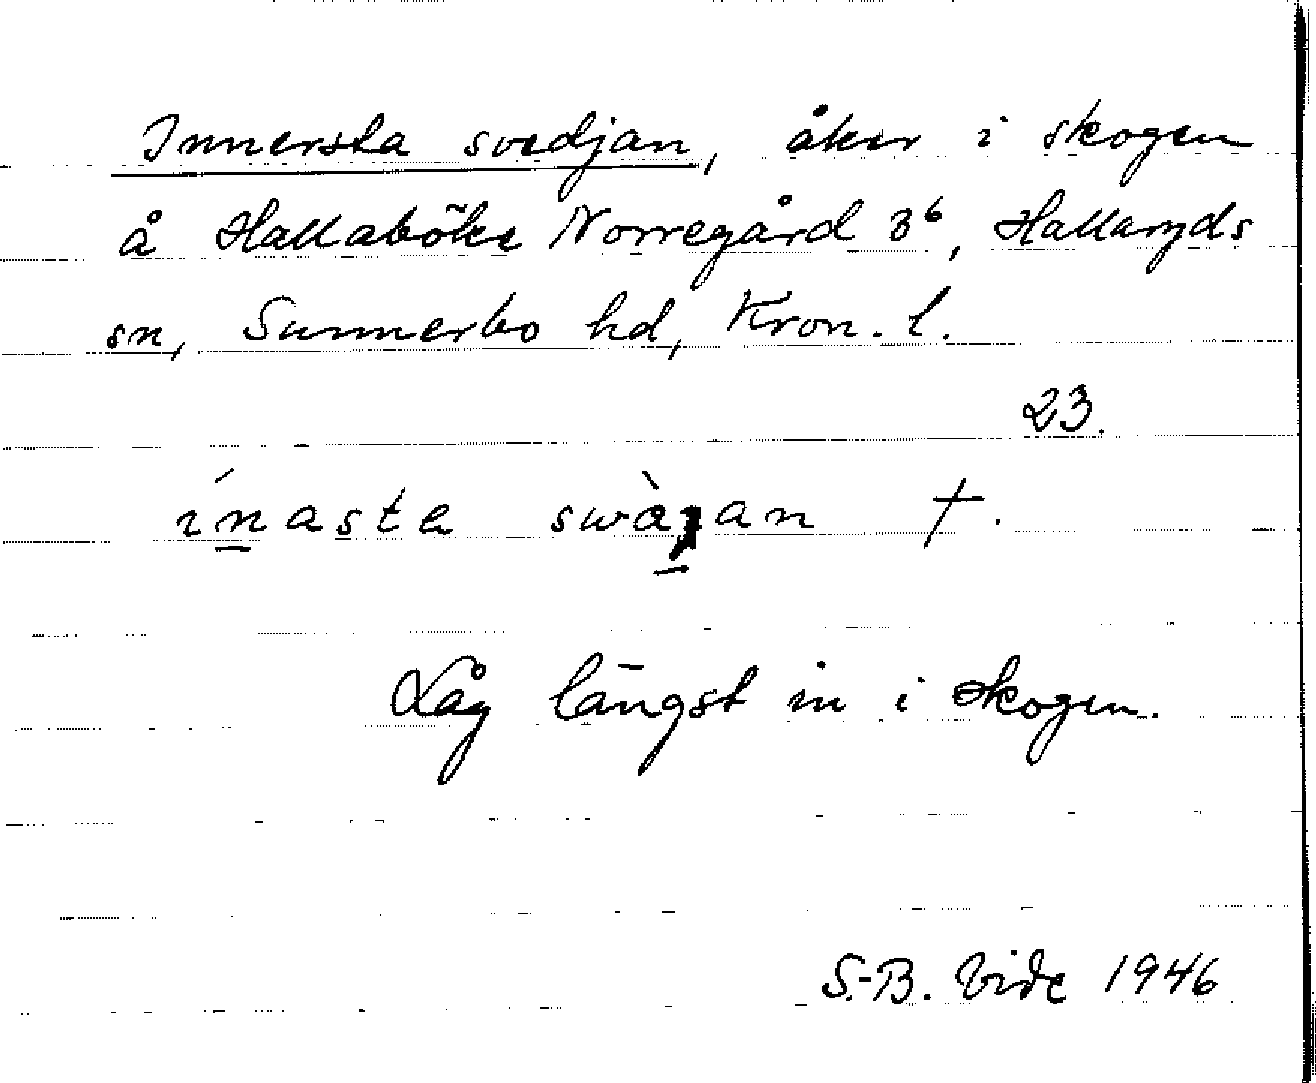 Innersta svedjan, åker i skogen
å Hallaböke Norregård 3⁶, Hallaryds
sn, Sunnerbo hd, Kron. l.
23.
ínasta swàjan †.
Låg längst in i skogen.
S.-B. Vide 1946